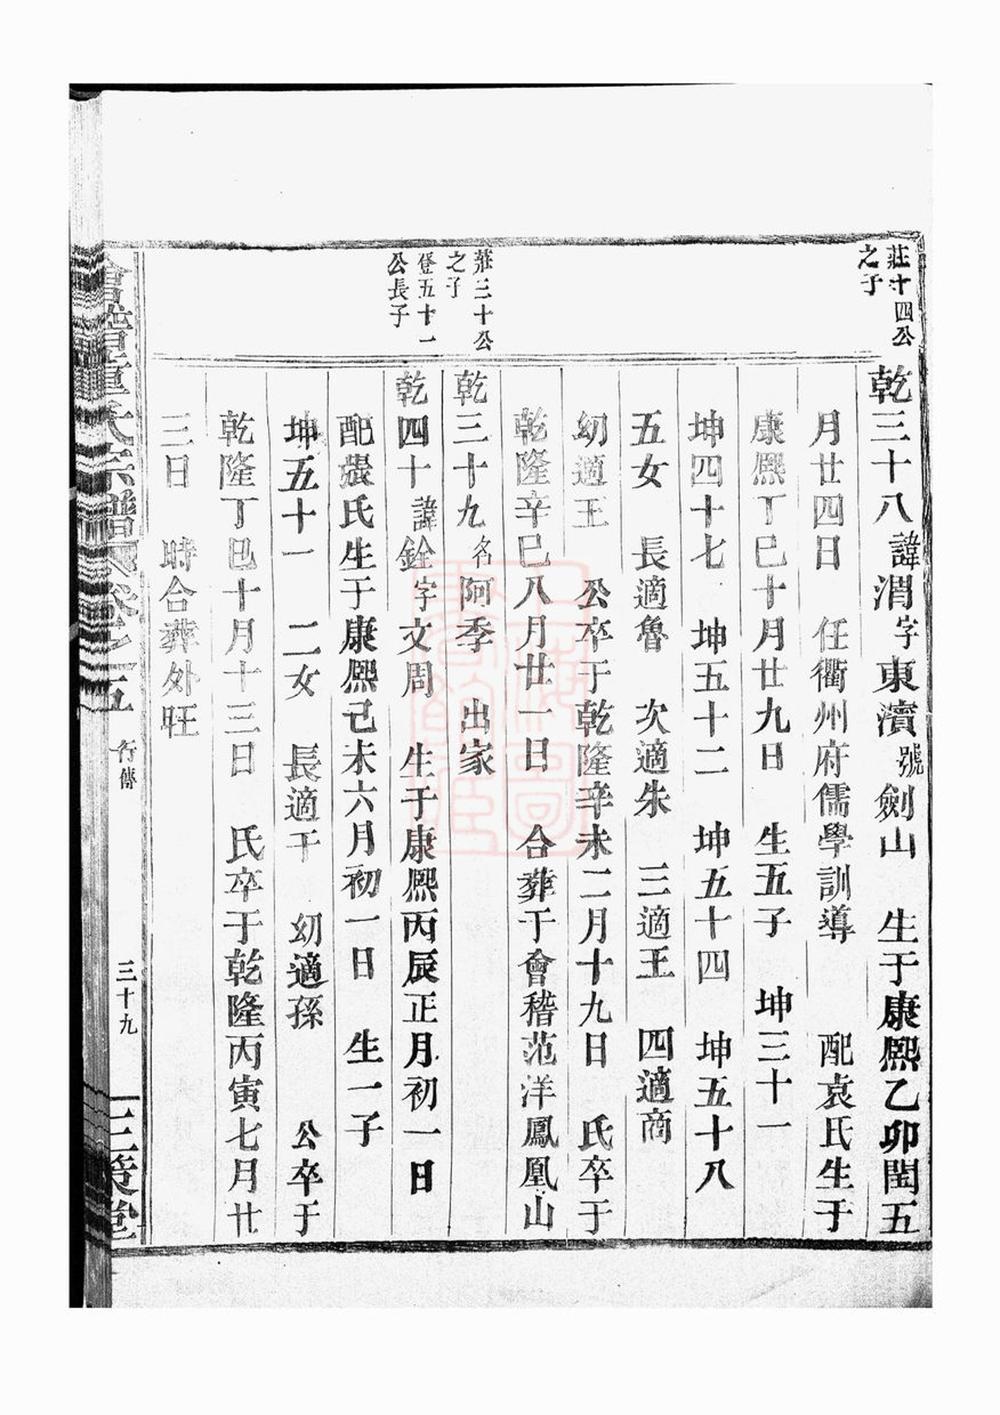 莊十四公
之子
乾三十八諱渭字東濱號劍山 生于康熙乙卯閏五
月廿四日 任衢州府儒學訓導 配袁氏生于
康熙丁巳十月廿九日 生五子 坤三十一
坤四十七 坤五十二 坤五十四 坤五十八
五女 長適魯 次適朱 三適王 四適商
幼適王 公卒于乾隆辛未二月十九日 氏卒于
乾隆辛巳八月廿一日 合葬于會稽范洋鳳凰山
莊三十公
之子
乾三十九名阿季 出家
登五十一
公長子
乾四十諱銓字文周 生于康熙丙辰正月初一日
配張氏生于康熙己未六月初一日 生一子
坤五十一 二女 長適干 幼適孫 公卒于
乾隆丁巳十月十三日 氏卒于乾隆丙寅七月廿
三日 時合葬外旺
會稽章氏宗譜 卷之五 行傳 三十九